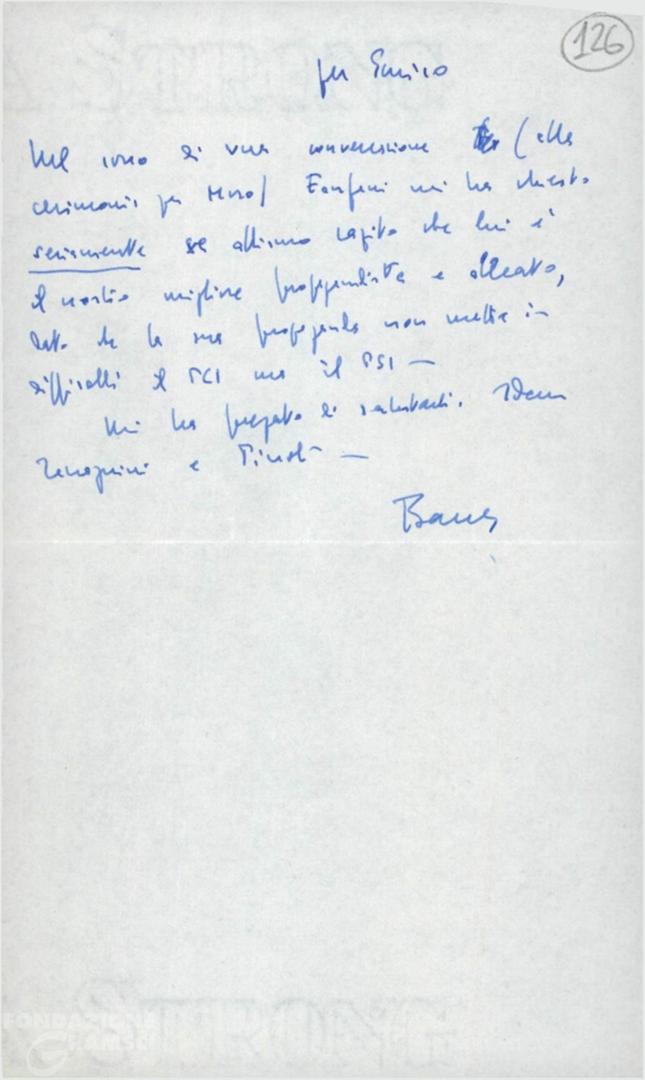 126
per Enrico
Nel corso di una conversazione (alla
cerimonia per Moro) Fanfani mi ha chiesto
seriamente se abbiamo capito che lui è
il nostro migliore propagandista e alleato,
dato che la sua propaganda non mette in
difficoltà il PCI ma il PSI —
Mi ha pregato di salutarti. Idem
Zaccagnini e
Barca
FONDAZIONE
GRAMSCI
STRONG